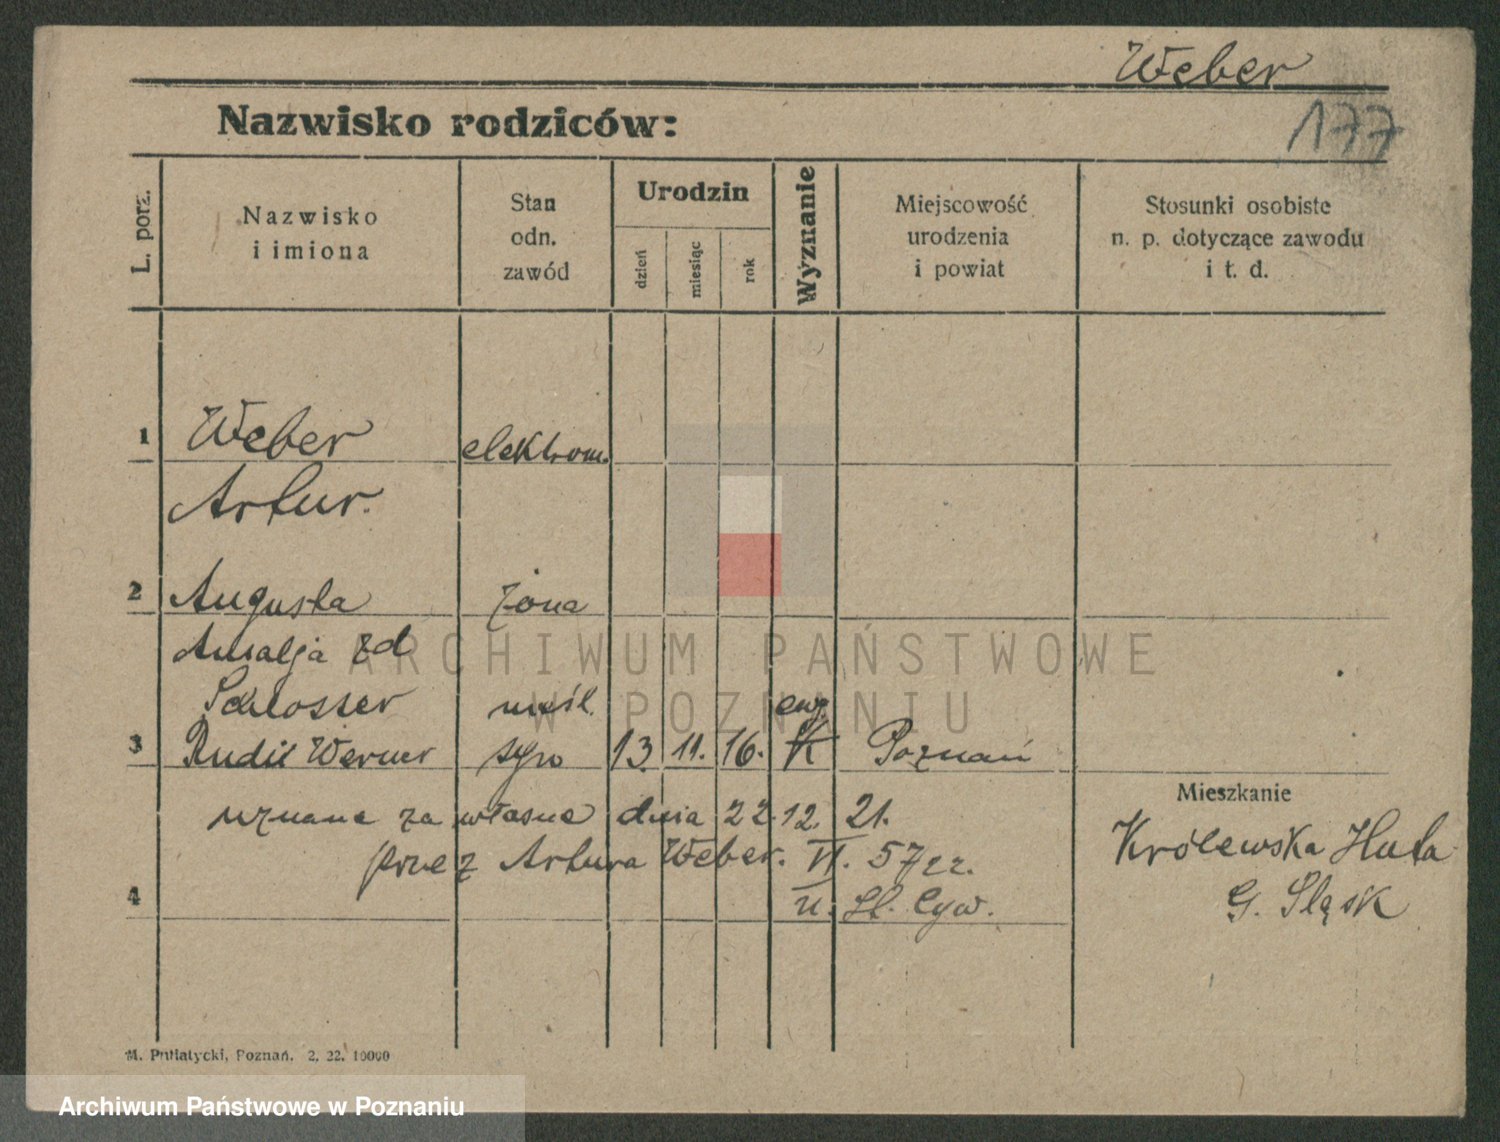 Weber
177
Nazwisko rodziców:
L. porz.
Nazwisko
i imiona
Stan
odn.
zawód
Urodzin
dzień
miesiąc
rok
Wyznanie
Miejscowość
urodzenia
i powiat
Stosunki osobiste
n. p. dotyczące zawodu
i t. d.
1 Weber elektrom.
Artur.
2 Augusta żona
Amalja zd
Schlosser nieśl. ewg.
3 Rudil Werner syn 13. 11. 16. K Poznań
uznane za własne dnia 22. 12. 21.
przez Artura Weber. VI. 57/22.
4 u. St. Cyw.
Mieszkanie
Królewska Huta
G. Śląsk
M. Putiatycki, Poznań. 2, 22. 10000
ARCHIWUM PAŃSTWOWE
W POZNANIU
Archiwum Państwowe w Poznaniu